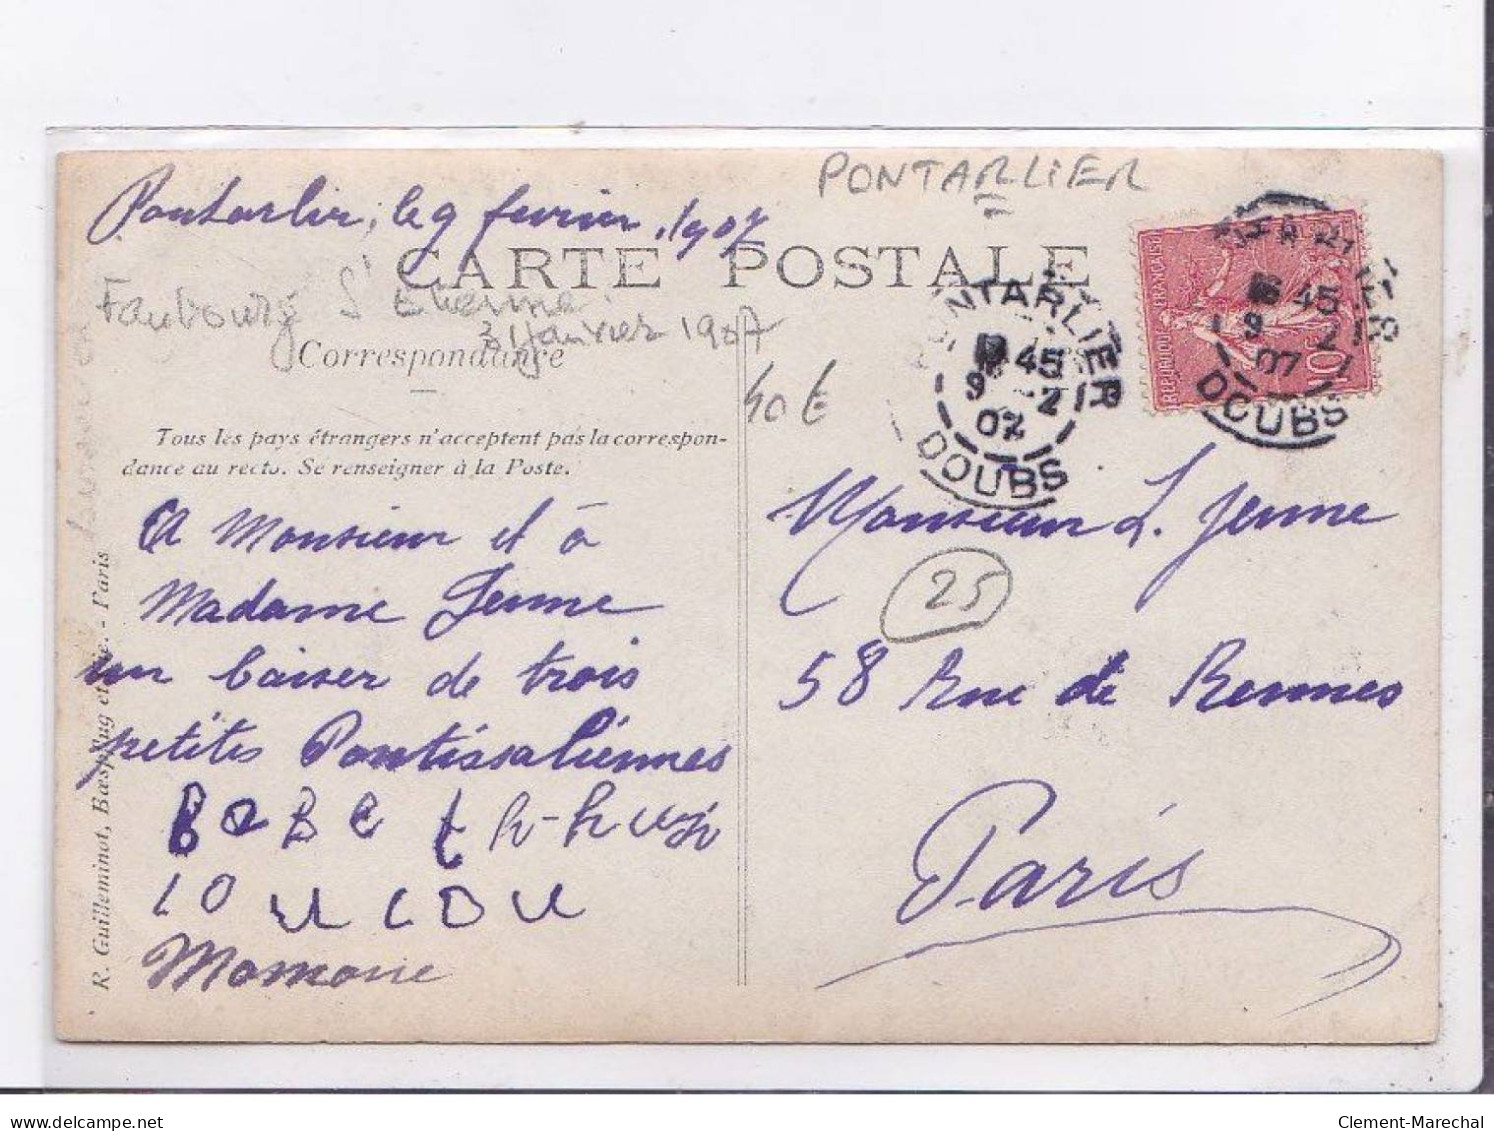 PONTARLIER
Pontarlier, le 9 fevrier 1907
CARTE POSTALE
Faubourg St Etienne
31 Janvier 1907
Correspondance
40 €
Tous les pays étrangers n'acceptent pas la correspon-
dance au recto. Se renseigner à la Poste.
PONTARLIER
45
9 -2
07
DOUBS
45
9 2
07
DOUBS
REPUBLIQUE FRANÇAISE
10
A Monsieur et à
Madame Jenne
un baiser de trois
petites Pontissaliennes
BOBE
LOULOU
Momone
Monsieur L. Jenne
25
58 Rue de Rennes
Paris
R. Guilleminot, Bœspflug et Cie. - Paris
delcampe.net
Clement-Marechal